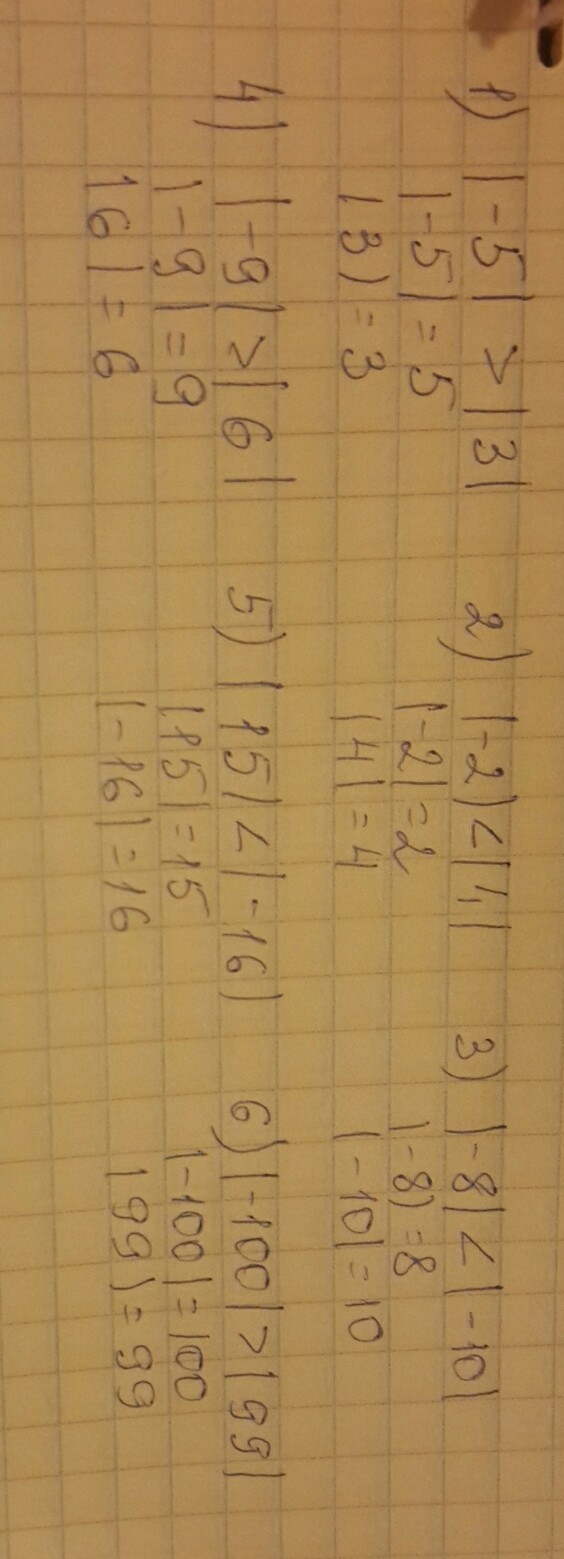 1) |-5| > |3|
|-5| = 5
|3| = 3
2) |-2| < |4|
|-2| = 2
|4| = 4
3) |-8| < |-10|
|-8| = 8
|-10| = 10
4) |-9| > |6|
|-9| = 9
|6| = 6
5) |15| < |-16|
|15| = 15
|-16| = 16
6) |-100| > |99|
|-100| = 100
|99| = 99